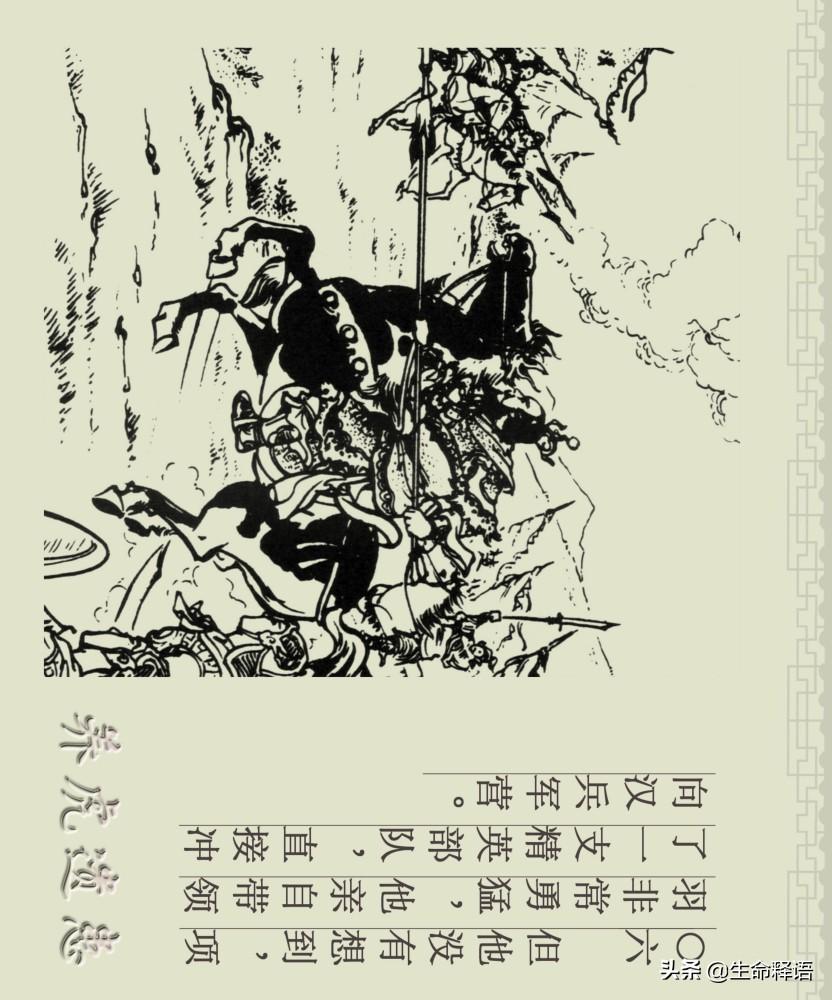 养虎遗患
〇六 但他没有想到，项
羽非常勇猛，他亲自带领
了一支精英部队，直接冲
向汉兵军营。
头条 @生命释语